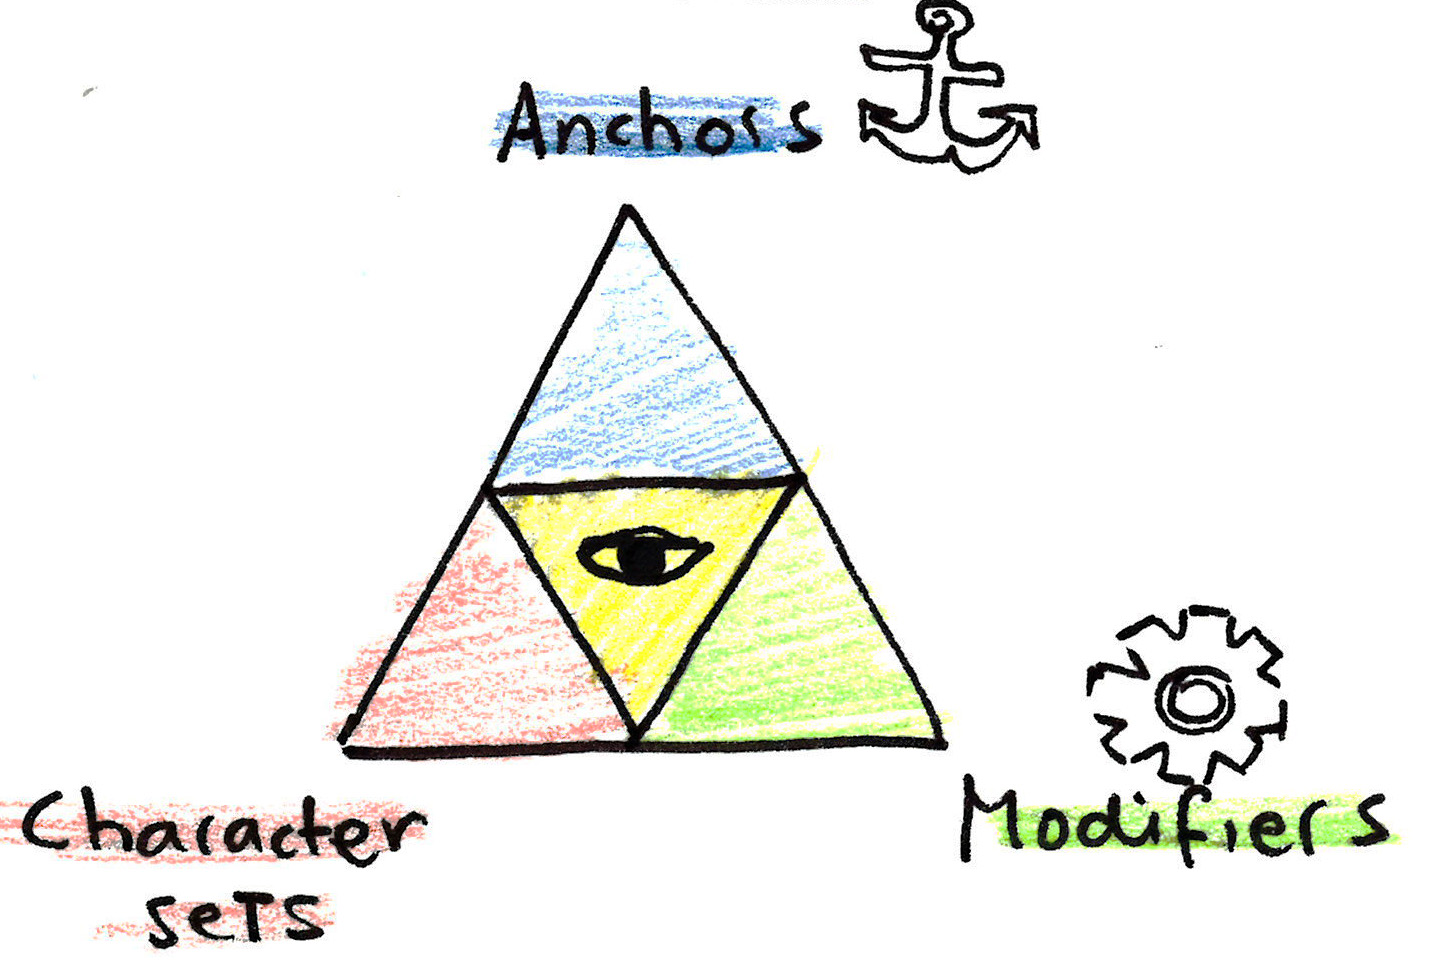 Anchors
Character
sets
Modifiers